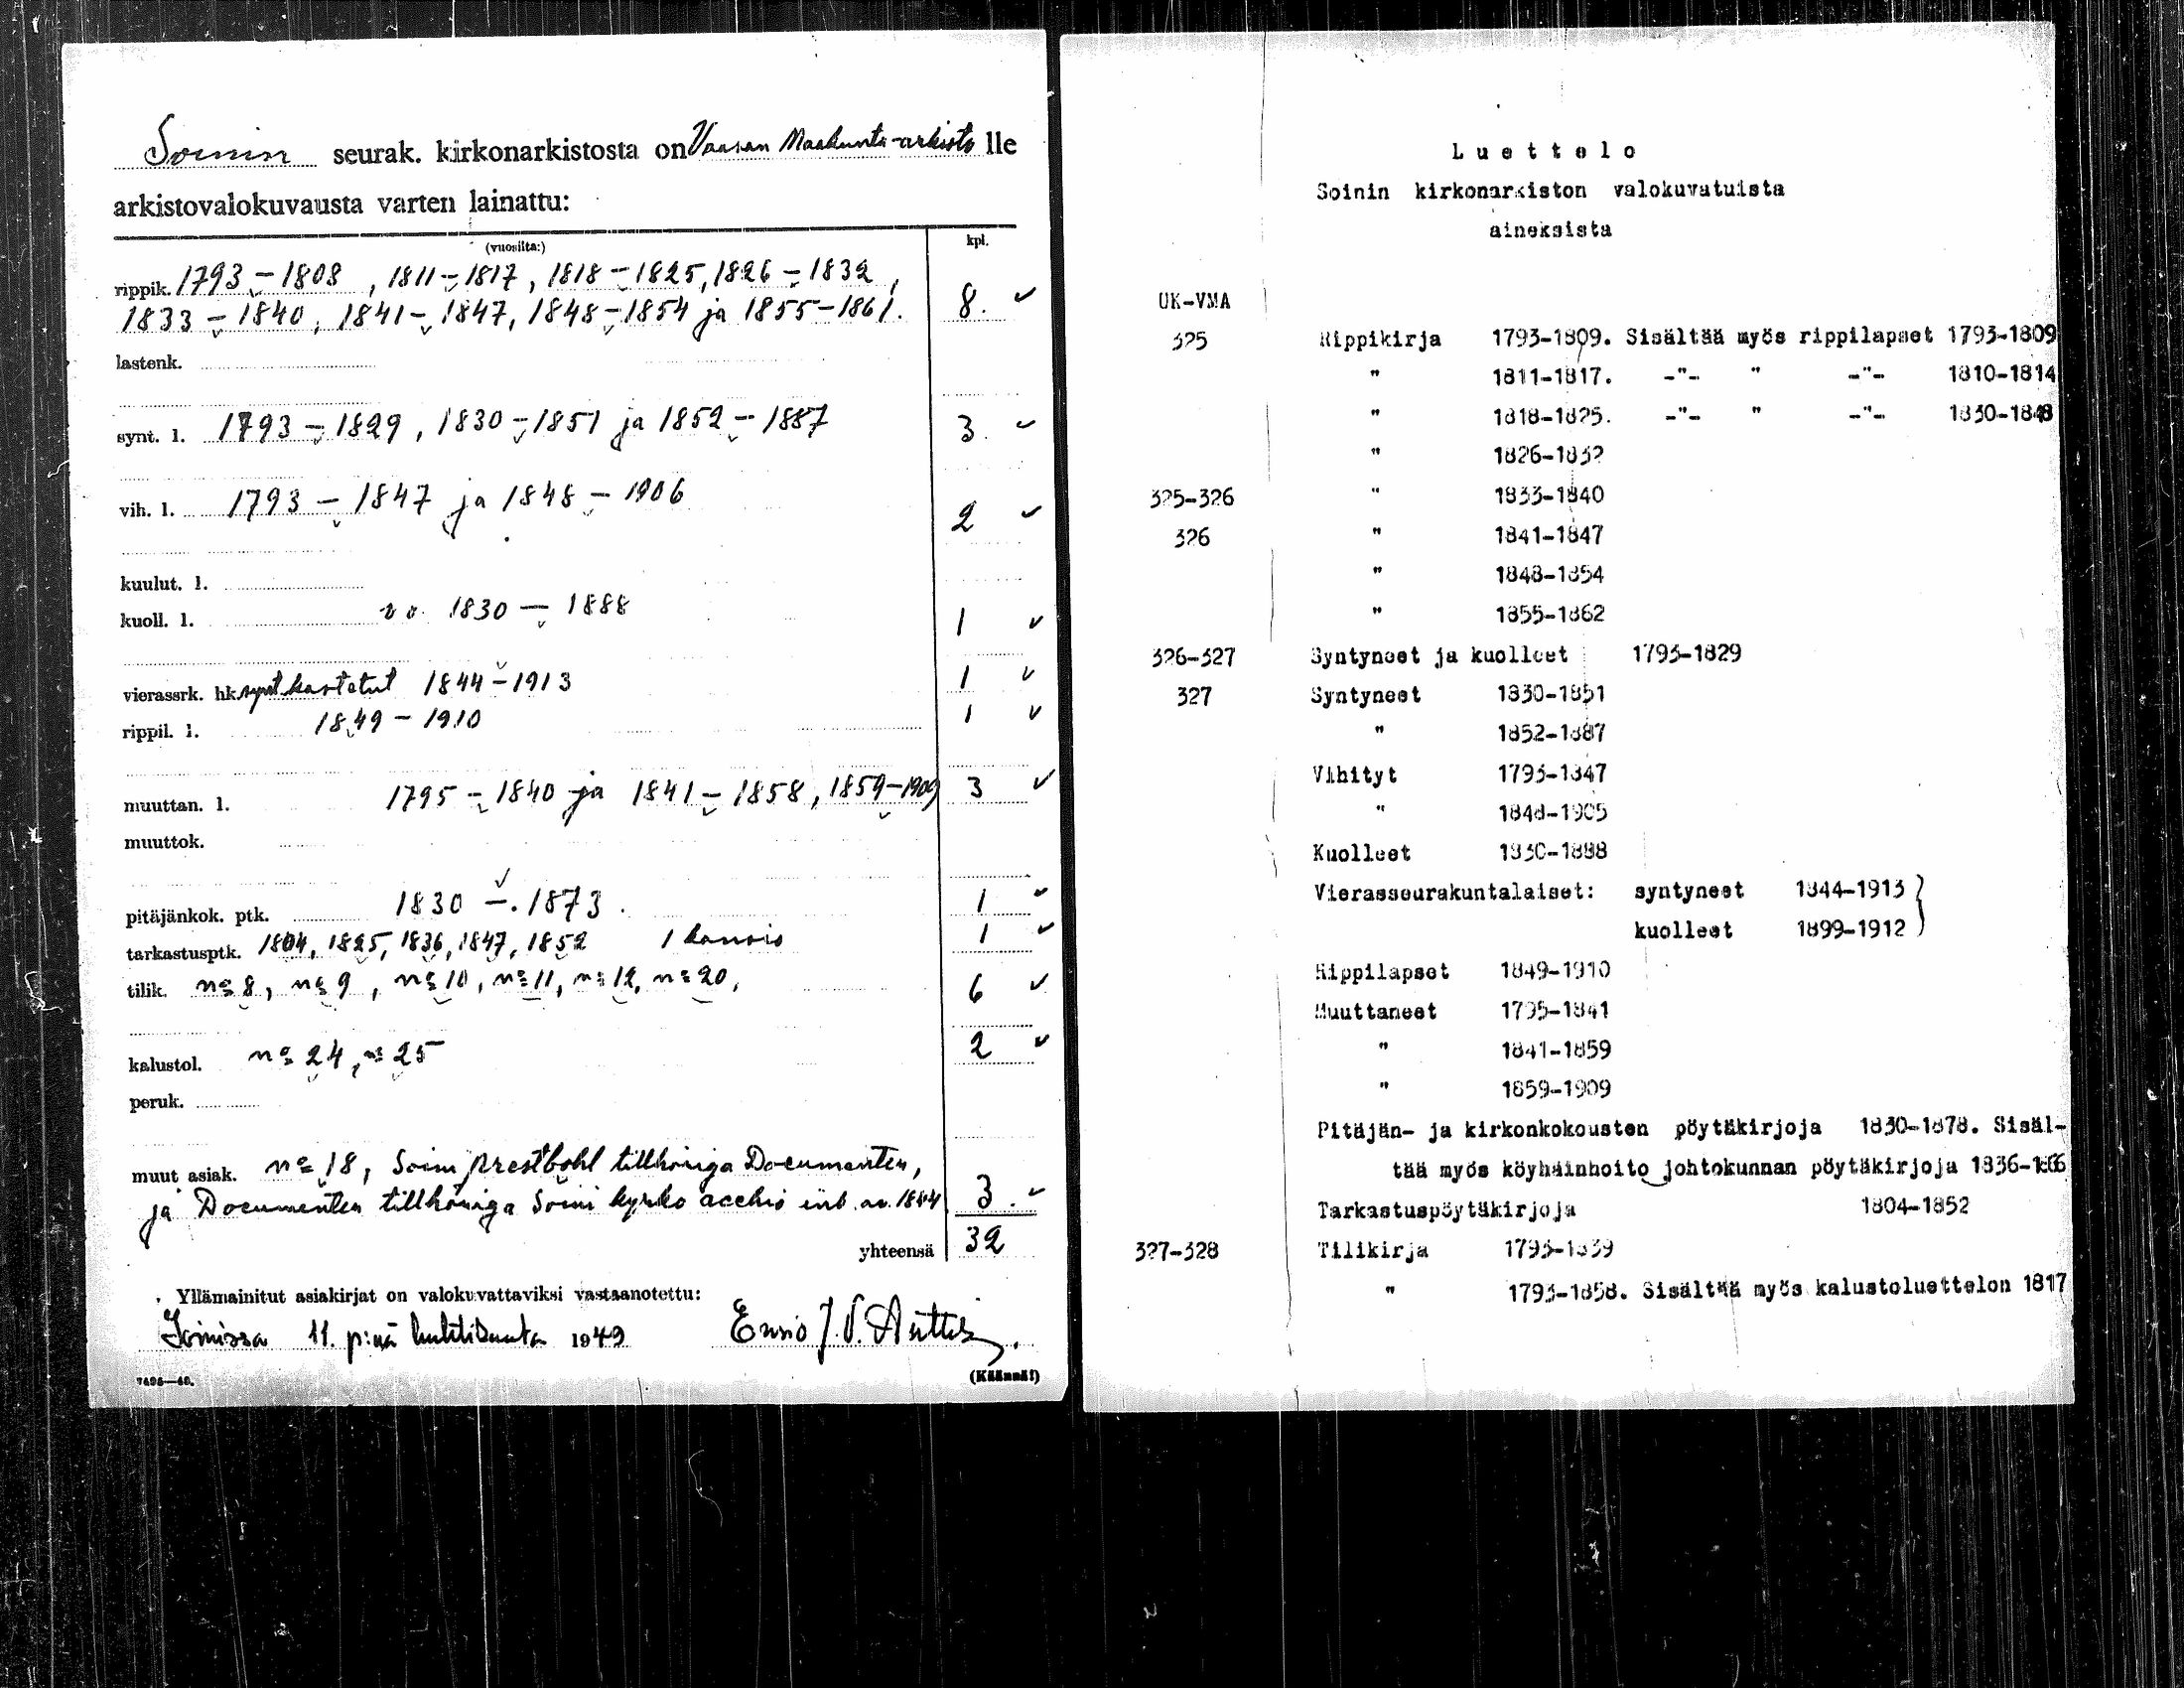 Soinin seurak. kirkonarkistosta on Vaasan Maakunta-arkisto lle
arkistovalokuvausta varten lainattu:
(vuosilta:) kpl.
rippik. 1793 – 1808, 1811 – 1817, 1818 – 1825, 1826 – 1832,
1833 – 1840, 1841 – 1847, 1848 – 1854 ja 1855 – 1861. 8.
lastenk.
synt. l. 1793 – 1829, 1830 – 1851 ja 1852 – 1887 3.
vih. l. 1793 – 1847 ja 1848 – 1906 2
kuulut. l.
kuoll. l. 1830 – 1888 1
vierassrk. hk. kastetut 1844 – 1913 1
rippil. l. 1849 – 1910 1
muuttan. l. 1795 – 1840 ja 1841 – 1858, 1859 – 1909 3
muuttok.
pitäjänkok. ptk. 1830 – 1873. 1
tarkastusptk. 1804, 1825, 1836, 1847, 1852 1 kansio 1
tilik. nº 8, nº 9, nº 10, nº 11, nº 12, nº 20, 6
kalustol. nº 24, nº 25 2
peruk.
muut asiak. nº 18, Soini prestbohl tillhöriga Documenter,
ja Documenter tillhöriga Soini kyrko 1844 3.
yhteensä 32
Yllämainitut asiakirjat on valokuvattaviksi vastaanotettu:
Soinissa 11. p:nä huhtikuuta 1949 Ensio J.
7495—48. (Käännä!)
Luettelo
Soinin kirkonarkiston valokuvatuista
aineksista
UK-VMA
325 Rippikirja 1793-1809. Sisältää myös rippilapset 1793-1809
" 1811-1817. -"- " -"- 1810-1814
" 1818-1825. -"- " -"- 1830-1848
" 1826-1832
325-326 " 1833-1840
326 " 1841-1847
" 1848-1854
" 1855-1862
326-327 Syntyneet ja kuolleet 1793-1829
327 Syntyneet 1830-1851
" 1852-1887
Vihityt 1793-1847
" 1848-1905
Kuolleet 1830-1888
Vierasseurakuntalaiset: syntyneet 1844-1913 }
kuolleet 1899-1912
Rippilapset 1849-1910
Muuttaneet 1795-1841
" 1841-1859
" 1859-1909
Pitäjän- ja kirkonkokousten pöytäkirjoja 1830-1878. Sisäl-
tää myös köyhäinhoito johtokunnan pöytäkirjoja 1836-1866
Tarkastuspöytäkirjoja 1804-1852
327-328 Tilikirja 1793-1839
" 1793-1858. Sisältää myös kalustoluettelon 1817